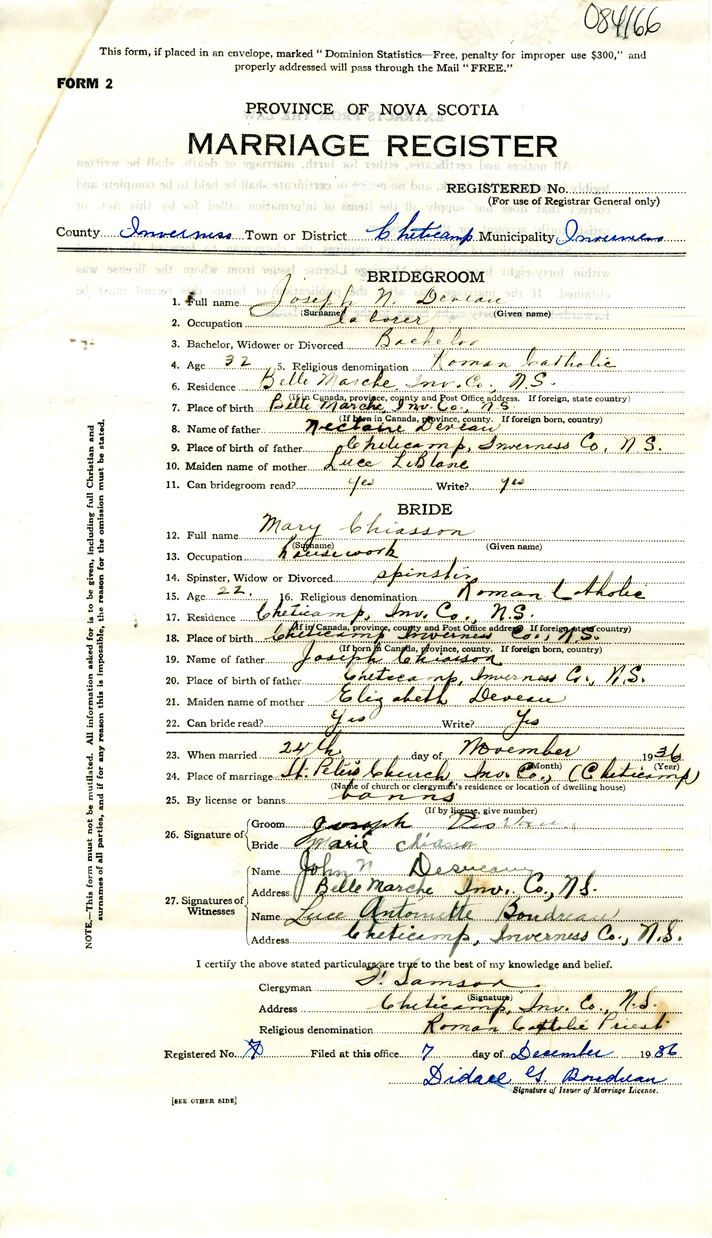 084166
This form, if placed in an envelope, marked "Dominion Statistics—Free, penalty for improper use $300," and
properly addressed will pass through the Mail "FREE."
FORM 2
PROVINCE OF NOVA SCOTIA
MARRIAGE REGISTER
REGISTERED No.
(For use of Registrar General only)
County Inverness Town or District Cheticamp Municipality Inverness
BRIDEGROOM
1. Full name Joseph N. Deveau
(Surname) (Given name)
2. Occupation laborer
3. Bachelor, Widower or Divorced Bachelor
4. Age 32 5. Religious denomination Roman Catholic
6. Residence Belle Marche, Inv. Co., N.S.
(If in Canada, province, county and Post Office address. If foreign, state country)
7. Place of birth Belle Marche, Inv. Co., NS
(If born in Canada, province, county. If foreign born, country)
8. Name of father Nectaire Deveau
9. Place of birth of father Cheticamp, Inverness Co, N.S.
10. Maiden name of mother Luce LeBlanc
11. Can bridegroom read? yes Write? yes
BRIDE
12. Full name Mary Chiasson
(Surname) (Given name)
13. Occupation housework
14. Spinster, Widow or Divorced spinster
15. Age 22. 16. Religious denomination Roman Catholic
17. Residence Cheticamp, Inv. Co., N.S.
(If in Canada, province, county and Post Office address. If foreign state country)
18. Place of birth Cheticamp Inverness Co., N.S.
(If born in Canada, province, county. If foreign born, country)
19. Name of father Joseph Chiasson
20. Place of birth of father Cheticamp, Inverness Co., N.S.
21. Maiden name of mother Elizabeth Deveau
22. Can bride read? Yes Write? Yes
23. When married 24th day of November 1936
(Month) (Year)
24. Place of marriage St. Peter's Church, Inv. Co., (Cheticamp)
(Name of church or clergyman's residence or location of dwelling house)
25. By license or banns banns
(If by license, give number)
26. Signature of Groom Joseph
Bride Marie Chiasson
27. Signatures of Witnesses Name John N Desveaux
Address Belle Marche Inv. Co., N.S.
Name Luce Antoinette Boudreau
Address Cheticamp, Inverness Co., N.S.
I certify the above stated particulars are true to the best of my knowledge and belief.
Clergyman Samson
(Signature)
Address Cheticamp, Inv. Co., N.S.
Religious denomination Roman Catholic Priest
Registered No. Filed at this office 7 day of December 1936
Didace G Boudreau
Signature of Issuer of Marriage License.
[SEE OTHER SIDE]
NOTE.—This form must not be mutilated. All information asked for is to be given, including full Christian and
surnames of all parties, and if for any reason this is impossible, the reason for the omission must be stated.